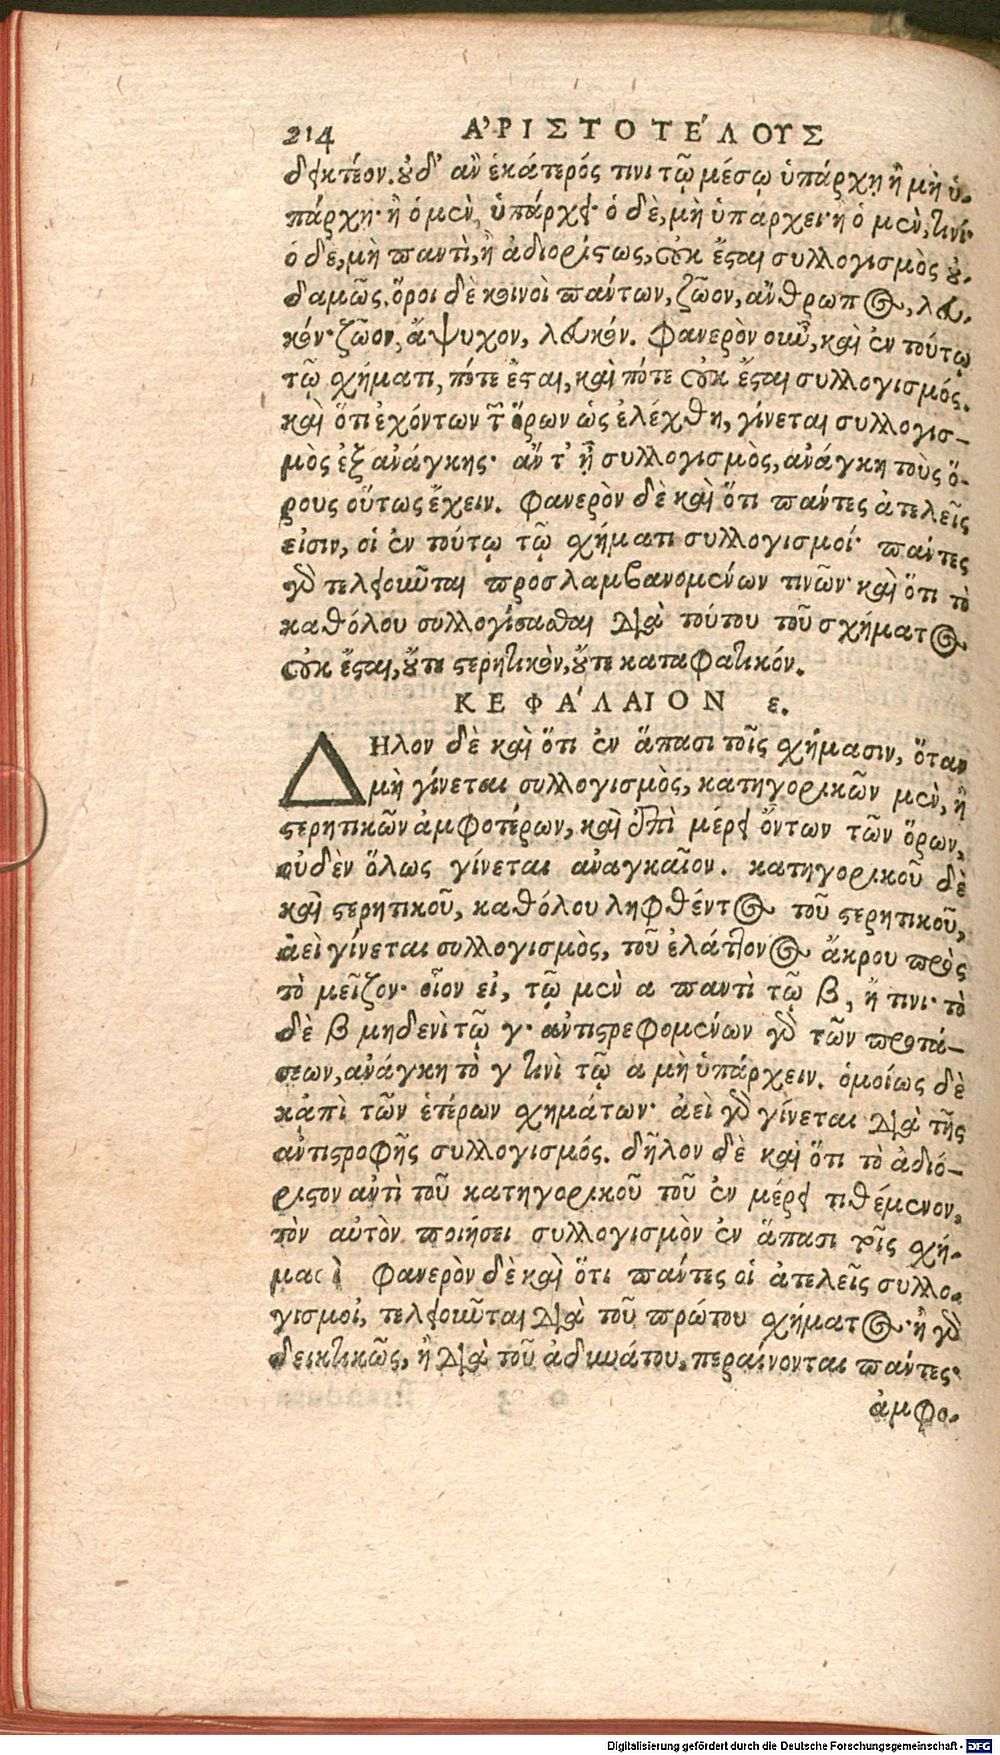 214 ἈΡΙΣΤΟΤΈΛΟΥΣ
δεικτέον. οὐδ' ἂν ἑκάτερός τινι τῷ μέσῳ ὑπάρχῃ ἢ μὴ ὑ-
πάρχῃ· ἢ ὁ μὲν ὑπάρχει· ὁ δὲ, μὴ ὑπαρχει· ἢ ὁ μὲν, τινί·
ὁ δε, μὴ παντὶ, ἢ ἀδιορίστως, οὐκ ἔσται συλλογισμὸς οὐ-
δαμῶς. ὅροι δὲ κοινοὶ πάντων, ζῶον, ἄνθρωπος, λευ-
κόν· ζῶον, ἄψυχον, λευκόν. Φανερὸν οὖν, καὶ ἐν τούτῳ
τῷ σχήματι, πότε ἔσται, καὶ πότε οὐκ ἔσται συλλογισμός.
καὶ ὅτι ἐχόντων τῶν ὅρων ὡς ἐλέχθη, γίνεται συλλογισ-
μὸς ἐξ ἀνάγκης· ἄν τ' ᾖ συλλογισμὸς, ἀνάγκη τοὺς ὅ-
ρους οὕτως ἔχειν. Φανερὸν δὲ καὶ ὅτι πάντες ἀτελεῖς
εἰσιν, οἱ ἐν τούτῳ τῷ σχήματι συλλογισμοί· πάντες
γὰρ τελειοῦνται προσλαμβανομένων τινῶν· καὶ ὅτι τὸ
καθόλου συλλογίσασθαι διὰ τούτου τοῦ σχήματος
οὐκ ἔσται, οὔτε στερητικὸν, οὔτε καταφατικόν.
ΚΕΦΆΛΑΙΟΝ ε.
ΔΗλον δὲ καὶ ὅτι ἐν ἅπασι τοῖς σχήμασιν, ὅταν
μὴ γίνεται συλλογισμὸς, κατηγορικῶν μὲν, ἢ
στερητικῶν ἀμφοτέρων, καὶ ἐπὶ μέρει ὄντων τῶν ὅρων,
οὐδὲν ὅλως γίνεται ἀναγκαῖον. κατηγορικοῦ δὲ
καὶ στερητικοῦ, καθόλου ληφθέντος τοῦ στερητικοῦ,
ἀεὶ γίνεται συλλογισμὸς, τοῦ ἐλάττονος ἄκρου πρὸς
τὸ μεῖζον· οἷον εἰ, τῷ μὲν α παντὶ τῷ β, ἤ τινι· τὸ
δὲ β μηδενὶ τῷ γ· ἀντιστρεφομένων γὰρ τῶν προτά-
σεων, ἀνάγκη τὸ γ τινὶ τῷ α μὴ ὑπάρχειν. ὁμοίως δὲ
κἀπὶ τῶν ἑτέρων σχημάτων· ἀεὶ γὰρ γίνεται διὰ τῆς
ἀντιστροφῆς συλλογισμός. δῆλον δὲ καὶ ὅτι τὸ ἀδιό-
ριστον ἀντὶ τοῦ κατηγορικοῦ τοῦ ἐν μέρει τιθέμενον,
τὸν αὐτὸν ποιήσει συλλογισμὸν ἐν ἅπασι τοῖς σχή-
μασι Φανερὸν δὲ καὶ ὅτι πάντες οἱ ἀτελεῖς συλλο-
γισμοὶ, τελειοῦνται διὰ τοῦ πρώτου σχήματος· ἢ γὰρ
δεικτικῶς, ἢ διὰ τοῦ ἀδυνάτου, περαίνονται πάντες·
ἀμφο-
Digitalisierung gefördert durch die Deutsche Forschungsgemeinschaft - DFG